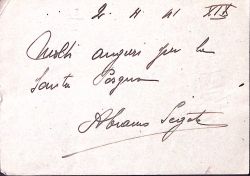 2. 4. 41 XIX
Molti auguri per la
Santa Pasqua
Abramo